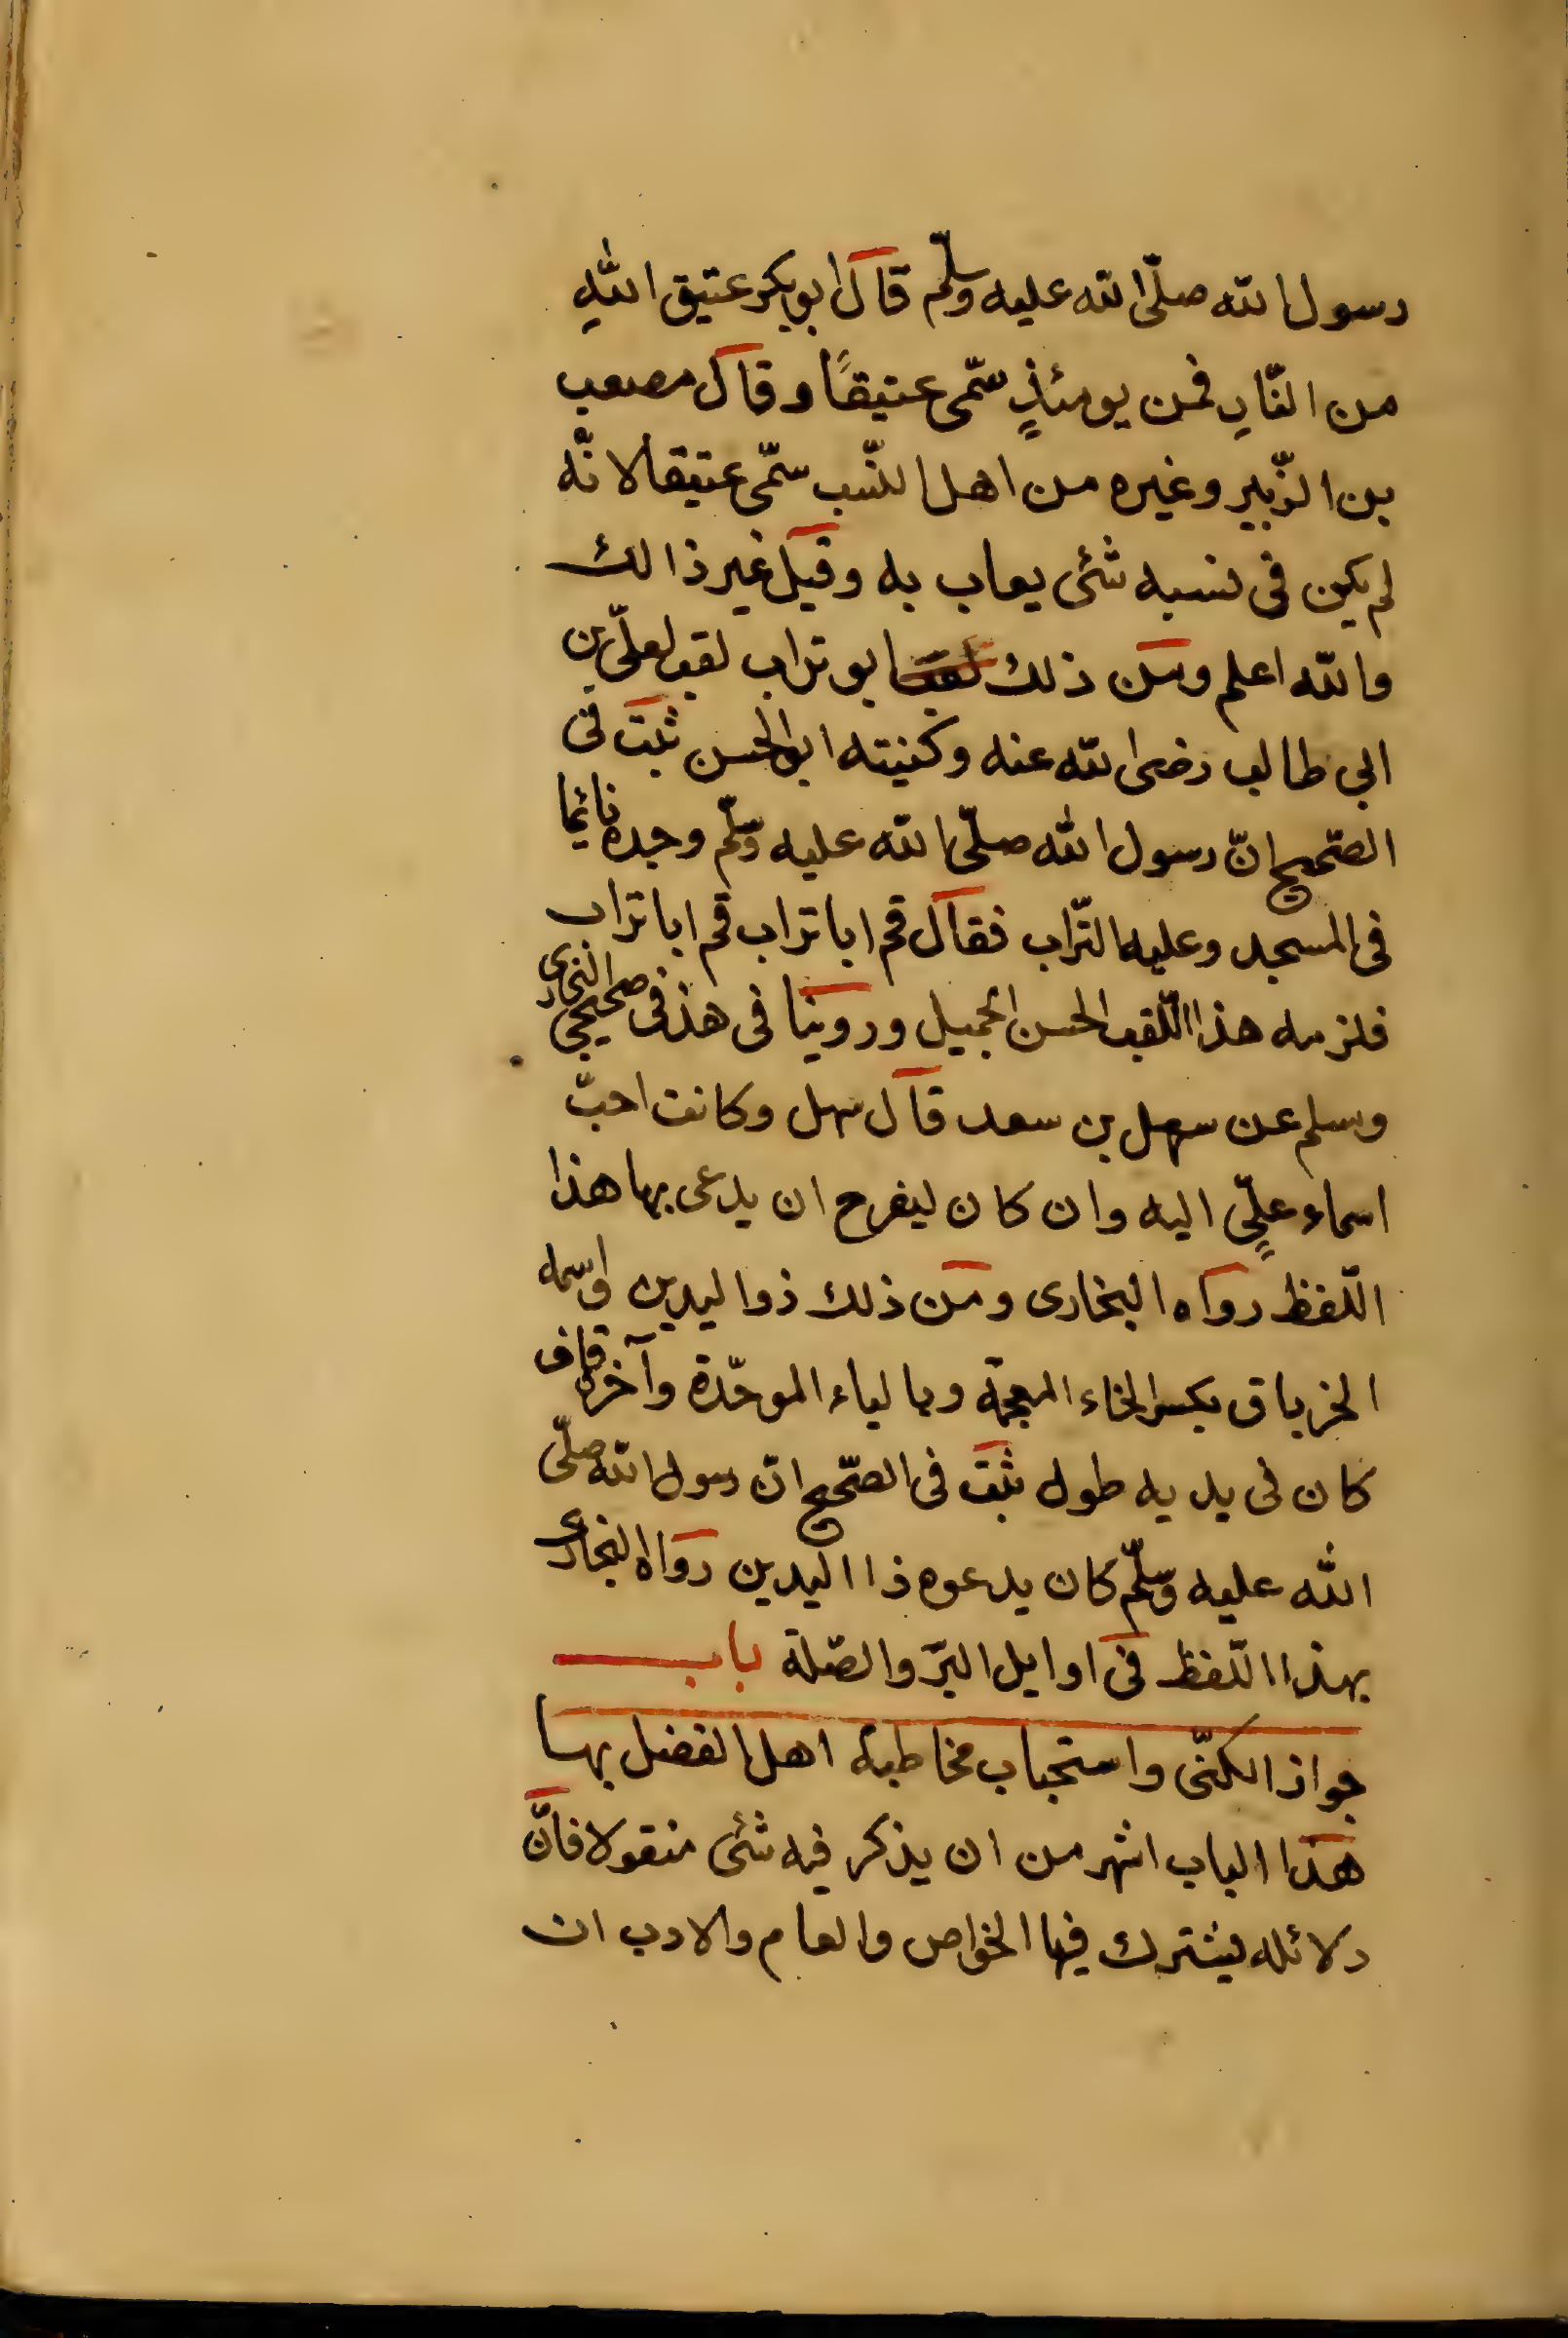 رسول الله صلّى الله عليه وسلّم قال ابو بكر عتيق اللهِ
من النّارِ فمن يومئذٍ سمّى عتيقًا وقال مصعب
بن الزّبير وغيره من اهل النّسب سمّى عتيقا لانّه
لم يكن فى نسبه شئى يعاب به وقيل غير ذالك
والله اعلم ومن ذلك ابو تراب لقب لعلّى بن
ابى طالب رضى الله عنه وكنيته ابو الحسن ثبت فى
الصّحيح انّ رسول الله صلّى الله عليه وسلّم وجده نائما
فى المسجد وعليه التّراب فقال قم ابا تراب قم ابا تراب
فلزمه هذا اللّقب الحسن الجميل وروينا فى هذ فى صحيحى البخارى
وسلم عن سهل بن سعد قال سهل وكانت احبّ
اسماء علىٍّ اليه وان كان ليفرح ان يدعى بها هذا
اللّفظ رواه البخارى ومن ذلك ذو اليدين واسمه
الخرباق بكسر الخاء المعجمة وبالباء الموحّدة وآخره قاف
كان فى يديه طول ثبت فى الصّحيح انّ رسول الله صلّى
الله عليه وسلّم كان يدعوه ذا اليدين رواه البخارى
بهذا اللّفظ فى اوايل البرّ والصّلة باب
جواز الكنّى واستحباب مخاطبة اهل الفضل بها
هذا الباب اشهر من ان يذكر فيه شئى منقولا فانّ
دلائله يشترك فيها الخواص والعام والادب ان